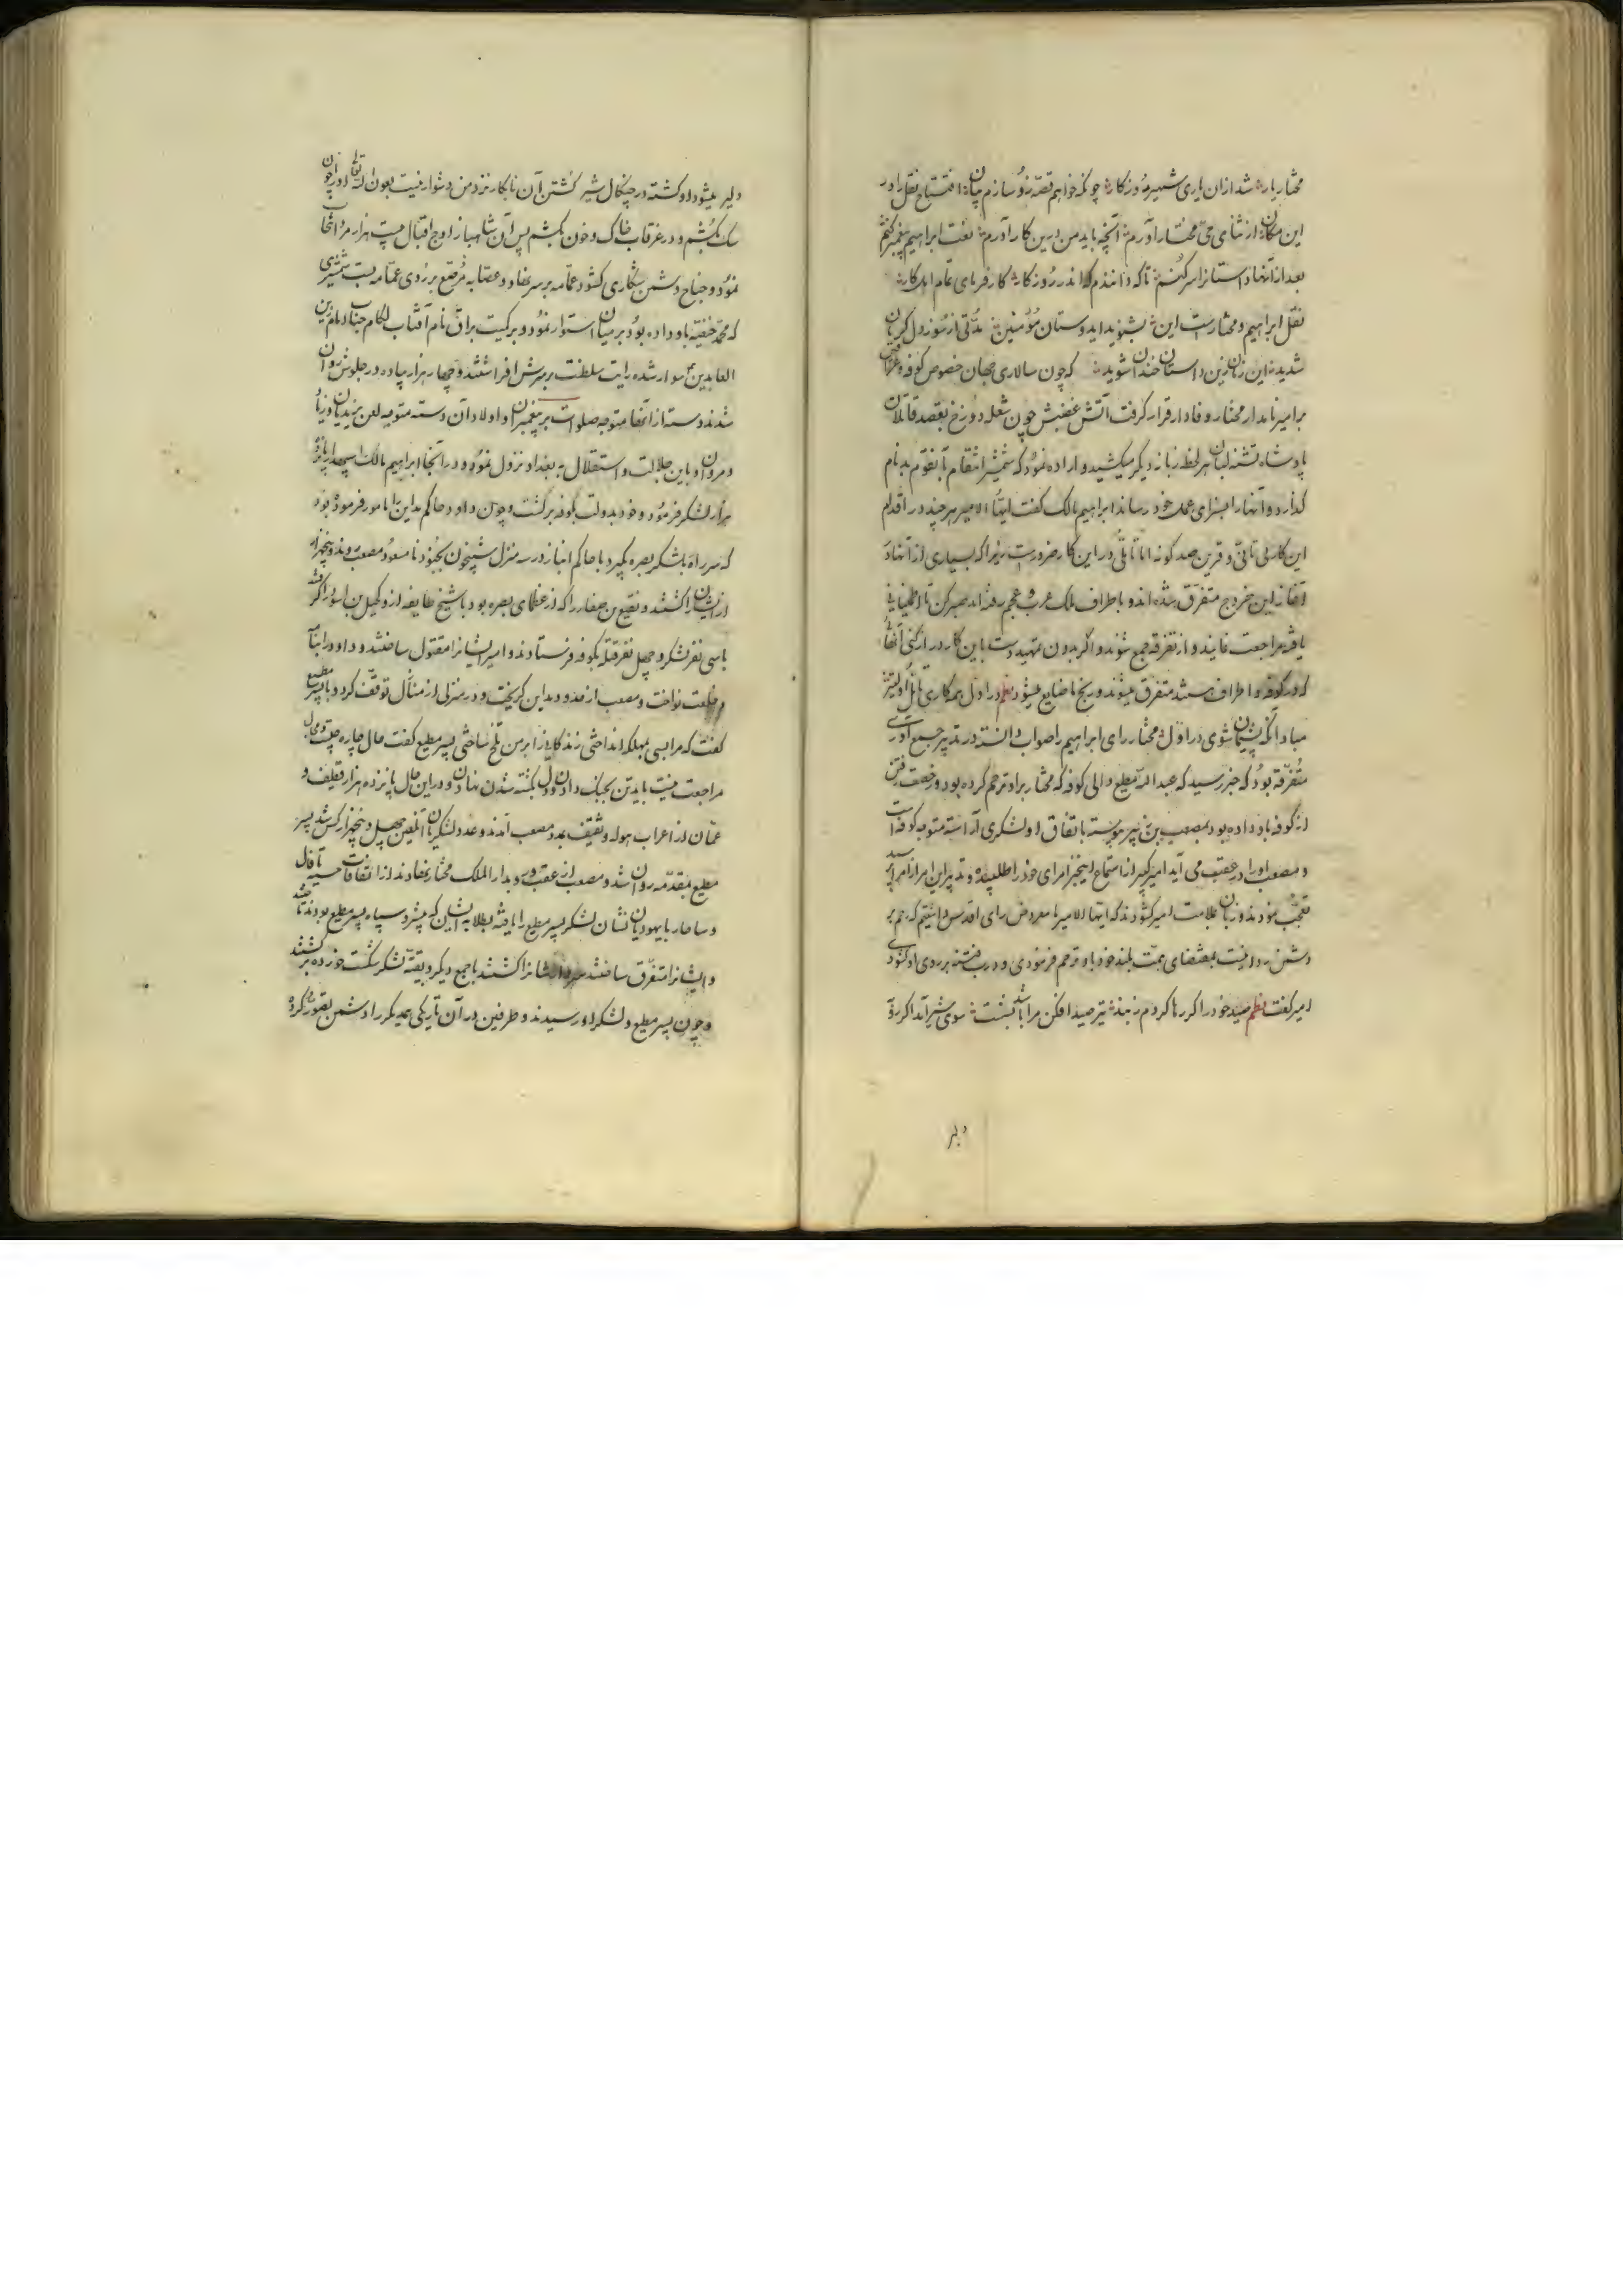 مختار یار شد ازان یاری شیر روزکار چونکه خواهم قصه رو سازم چنان افتتاح نقل را در
این مکان از ثنای حی مختار آورم آنچه باید من درین کار آورم نعت ابراهیم پیغمبر کنم
بعد ازانها داستانرا سر کنم تا که دانندم که اندر روزکار کارفرمای تمام اهل کار
نقل ابراهیم و مختارست این بشنوید ایدوستان مؤمنین مدتی از سوز دل کریان
شدید این زمان زین داستان خندان شوید که چون سالاری جهان خصوص کوفه و عراق
بر امیر نامدار مختار وفادار قرار کرفت آتش غضبش چون شعله دوزخ بقصد قاتلان
پادشاه تشنه لبان هر لحظه زبانه دیکر میکشید و اراده نمود که شمشیر انتقام بآنقوم بدنام
کذارد و آنها را بسزای عمل خود رساند ابراهیم مالک کفت ایها الامیر هرچند در اقدام
این کار بی تانی و قرین صد کونه اما تاملی در این کار ضرورست زیرا که بسیاری از آنها در
آغاز این خروج متفرق شده اند و باطراف ملک عرب و عجم رفته اند صبر کن تا اطمینان
یافته مراجعت نمایند و از تفرقه جمع شوند و اکر بدون تمهید دست باین کار دراز کنی آنها
که در کوفه و اطراف هستند متفرق میشوند و رنج ما ضایع میشود نظم در اول بهر کاری تامل اولیتر
مبادا آنکه پشیمان شوی در اول مختار رای ابراهیم را صواب دانسته در تدبیر جمع آوری
متفرقه بود که خبر رسید که عبد الله مطیع والی کوفه که مختار بر او ترحم کرده بود و رخصت رفتن
از کوفه باو داده بود بمصعب بن زبیر پیوسته باتفاق او لشکری آراسته متوجه کوفه است
و مصعب او را در عقب می آید امیر کبیر از استماع اینخبر امرای خود را طلبیده و تدبیر این امر از امرا پرسید
تعجب نمودند و زبان ملامت امیر کشودند که ایها الامیر ما معروض رای اقدس داشتیم که رحم بر
دشمن روا نیست بمقتضای همت بلند خود باو ترحم فرمودی و درب فتنه بر روی او کشودی
امیر کفت نظم صید خود را کر رها کردم ز بند تیر صید افکن مرا باشد بشست سوی شیر آید اکر رو
دلیر
دلیر میشود او کشته در چنکال شیر کشتن آن نابکار نزد من دشوار نیست بعون الله تعالی او را چون
سک بکشم و در غرقاب خاک و خون بکشم پس آن شاهباز اوج اقبال بیست هزار مرد انتخاب
نمود و جناح دشمن شکاری کشود عمامه بر سر نهاد و عصابه مرصع بر روی عمامه بست شمشیری
که محمد حنفیه باو داده بود بر میان استوار نمود و بر کمیت براق نام آفتاب لکام جناب امام زین
العابدین سوار شده رایت سلطنت بر سرش افراشتند و چهار هزار پیاده در جلوش روان
شدند دسته از آنها متوجه صلوات بر پیغمبران و اولاد آن و دسته متوجه لعن یزیدیان و زیاد
و مروان او باین جلالت و استقلال به بغداد نزول نمود و در آنجا ابراهیم مالک
هزار لشکر فرمود و خود بدولت بکوفه برکشت و چون داود حاکم مداین را مامور فرموده بود
که سر راه بلشکر بصره بکیرد با حاکم انبار در سه منزل شبیخون بجنود نامسعود مصعب زدند و پنجهزار
ازیشان را کشتند و نقیع بن صفار را که از عظمای بصره بود با شیخ طایفه از
باسی نفر لشکر و چهل نفر قتله بکوفه فرستادند و امیر ایشانرا مقتول ساختند و داود را
خلعت نواخت و مصعب از مداین کریخت و در منزلی از منازل توقف کرد و با پسر مطیع
کفت که مرا بسی بمهلکه انداختی زندکانی را بر من تلخ ساختی پسر مطیع کفت حال چاره چیست و مجال
مراجعت نیست باید تن بجنک دادن و دل بکشته شدن نهادن و در این حال پانزده هزار قطیف و
عمان از اعراب هوله و ثقیف بمدد مصعب آمدند و عدد لشکریان آنلعین چهل و پنجهزار کس شد پسر
مطیع بمقدمه روان شد و مصعب از عقب و رو بدار الملک مختار نهادند از اتفاقات حسنه
و با یهودیان نشان لشکر پسر مطیع را یافته بطلایه ایشان که پیشرو سپاه پسر مطیع بودند
و ایشانرا متفرق ساختند را کشتند با جمع دیکر و بقیه لشکر شکست خورده برکشتند
و چون پسر مطیع و لشکر او رسیدند و طرفین در آن تاریکی همدیکر را دشمن تصور کرده